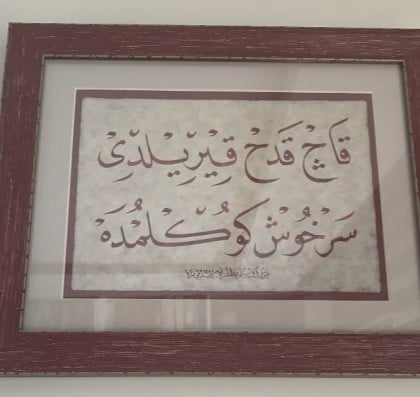 قَاچْ قَدَحْ قِيرِيلْدِىْ
سَرْخُوشْ كوُكُلمْدَهْ